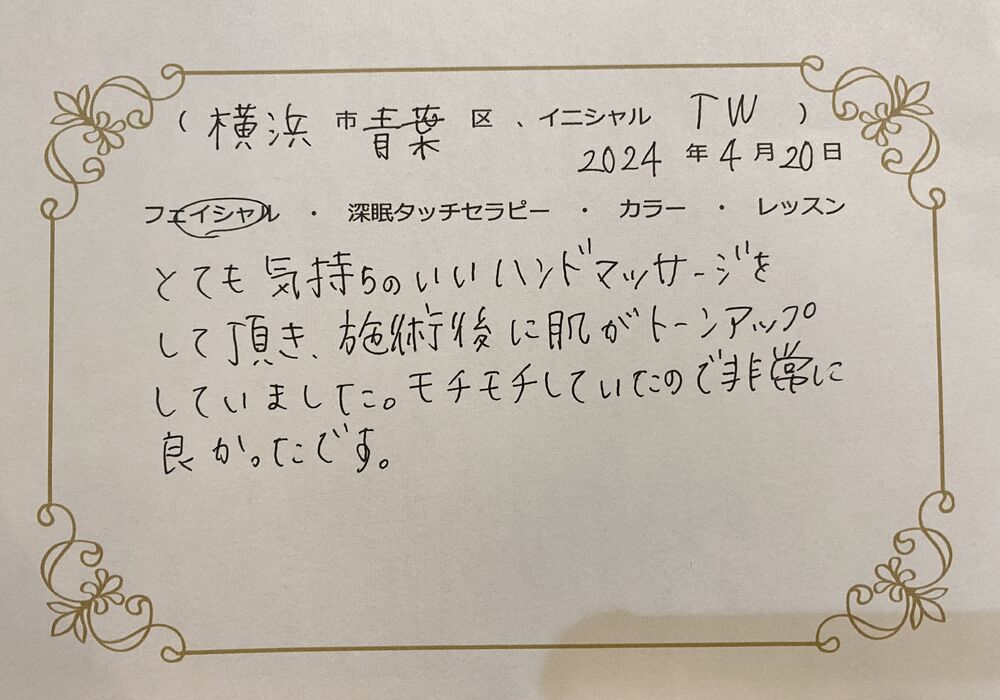 (横浜市青葉区、イニシャル TW)
2024年4月20日
フェイシャル ・ 深眠タッチセラピー ・ カラー ・ レッスン
とても気持ちのいいハンドマッサージを
して頂き、施術後に肌がトーンアップ
していました。モチモチしていたので非常に
良かったです。